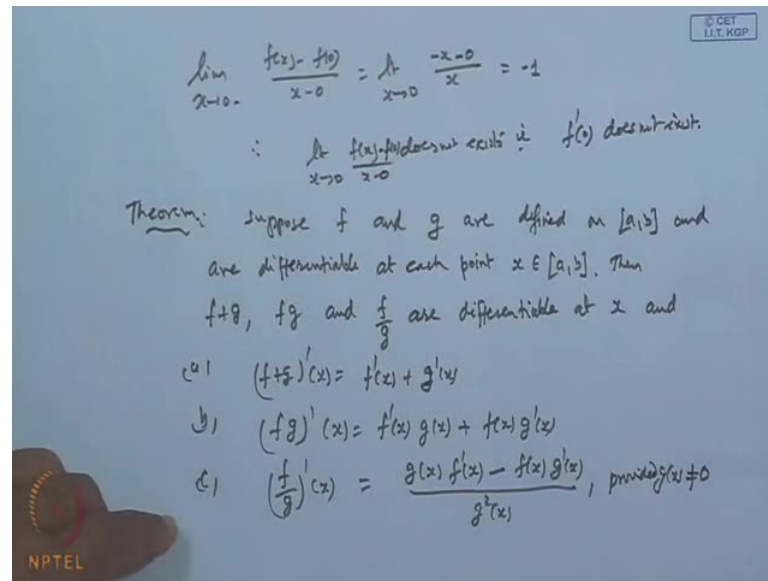 © CET
I.I.T. KGP
lim x→0- f(x)-f(0) / x-0 = lt x→0 -x-0 / x = -1
∴ lt x→0 f(x)-f(0) / x-0 does not exists ie f'(0) does not exist.
Theorem: Suppose f and g are defined on [a,b] and
are differentiable at each point x ∈ [a,b]. Then
f+g, fg and f/g are differentiable at x and
(a) (f+g)'(x) = f'(x) + g'(x)
b) (fg)'(x) = f'(x) g(x) + f(x) g'(x)
c) (f/g)'(x) = g(x) f'(x) - f(x) g'(x) / g²(x), provided g(x) ≠ 0
NPTEL